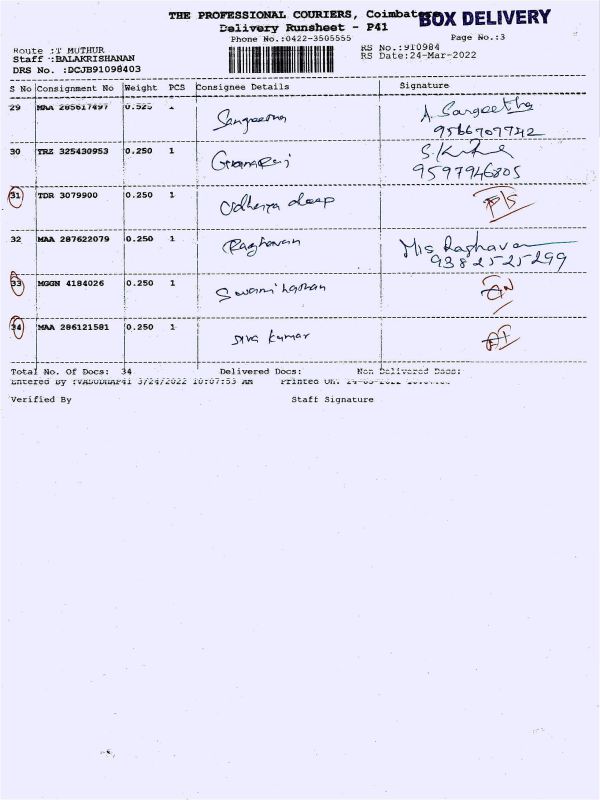 THE PROFESSIONAL COURIERS, Coimbatore
BOX DELIVERY
Delivery Runsheet - P41
Phone No.:0422-3505555
Page No.:3
Route :T MUTHUR
RS No.:910984
Staff :BALAKRISHANAN
RS Date:24-Mar-2022
DRS No. :DCJB91098403
S No Consignment No Weight PCS Consignee Details Signature
29 MAA 285617497 0.525 1 Sangeetha A. Sangeetha
9566707742
30 TRZ 325430953 0.250 1
9597946805
31 TDR 3079900 0.250 1 deep P/S
32 MAA 287622079 0.250 1 Raghavan M/s Raghavan
9382525299
33 MGGN 4184026 0.250 1
34 MAA 286121581 0.250 1 siva kumar
Total No. Of Docs: 34 Delivered Docs: Non Delivered Docs:
Entered By :VASUDHAP41 3/24/2022 10:07:53 AM Printed On: 24-03-2022
Verified By Staff Signature